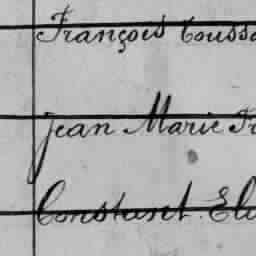 François Touss
Jean Marie Fr
Constant Eli